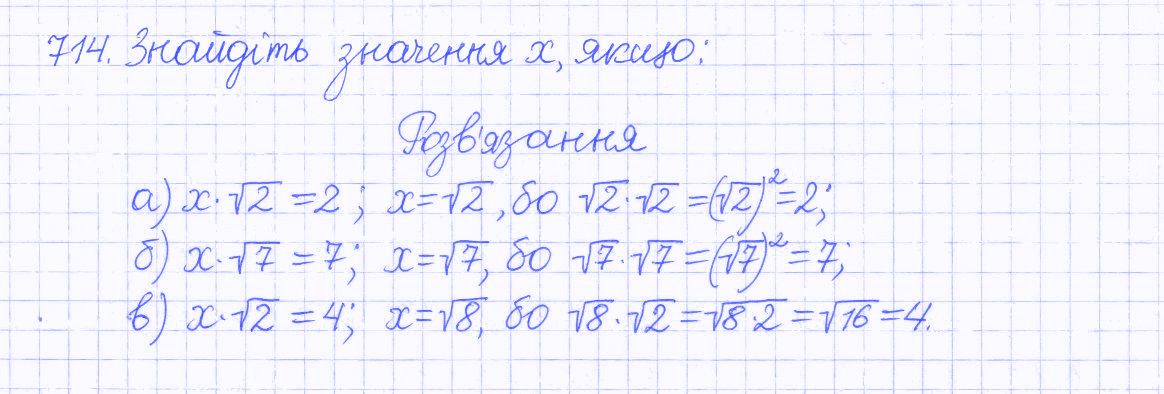 714. Знайдіть значення x, якщо:
Розв'язання
а) x·√2 = 2; x=√2, бо √2·√2 =(√2)²=2;
б) x·√7 = 7; x=√7, бо √7·√7 =(√7)²=7;
в) x·√2 = 4; x=√8, бо √8·√2 =√8·2 =√16 =4.